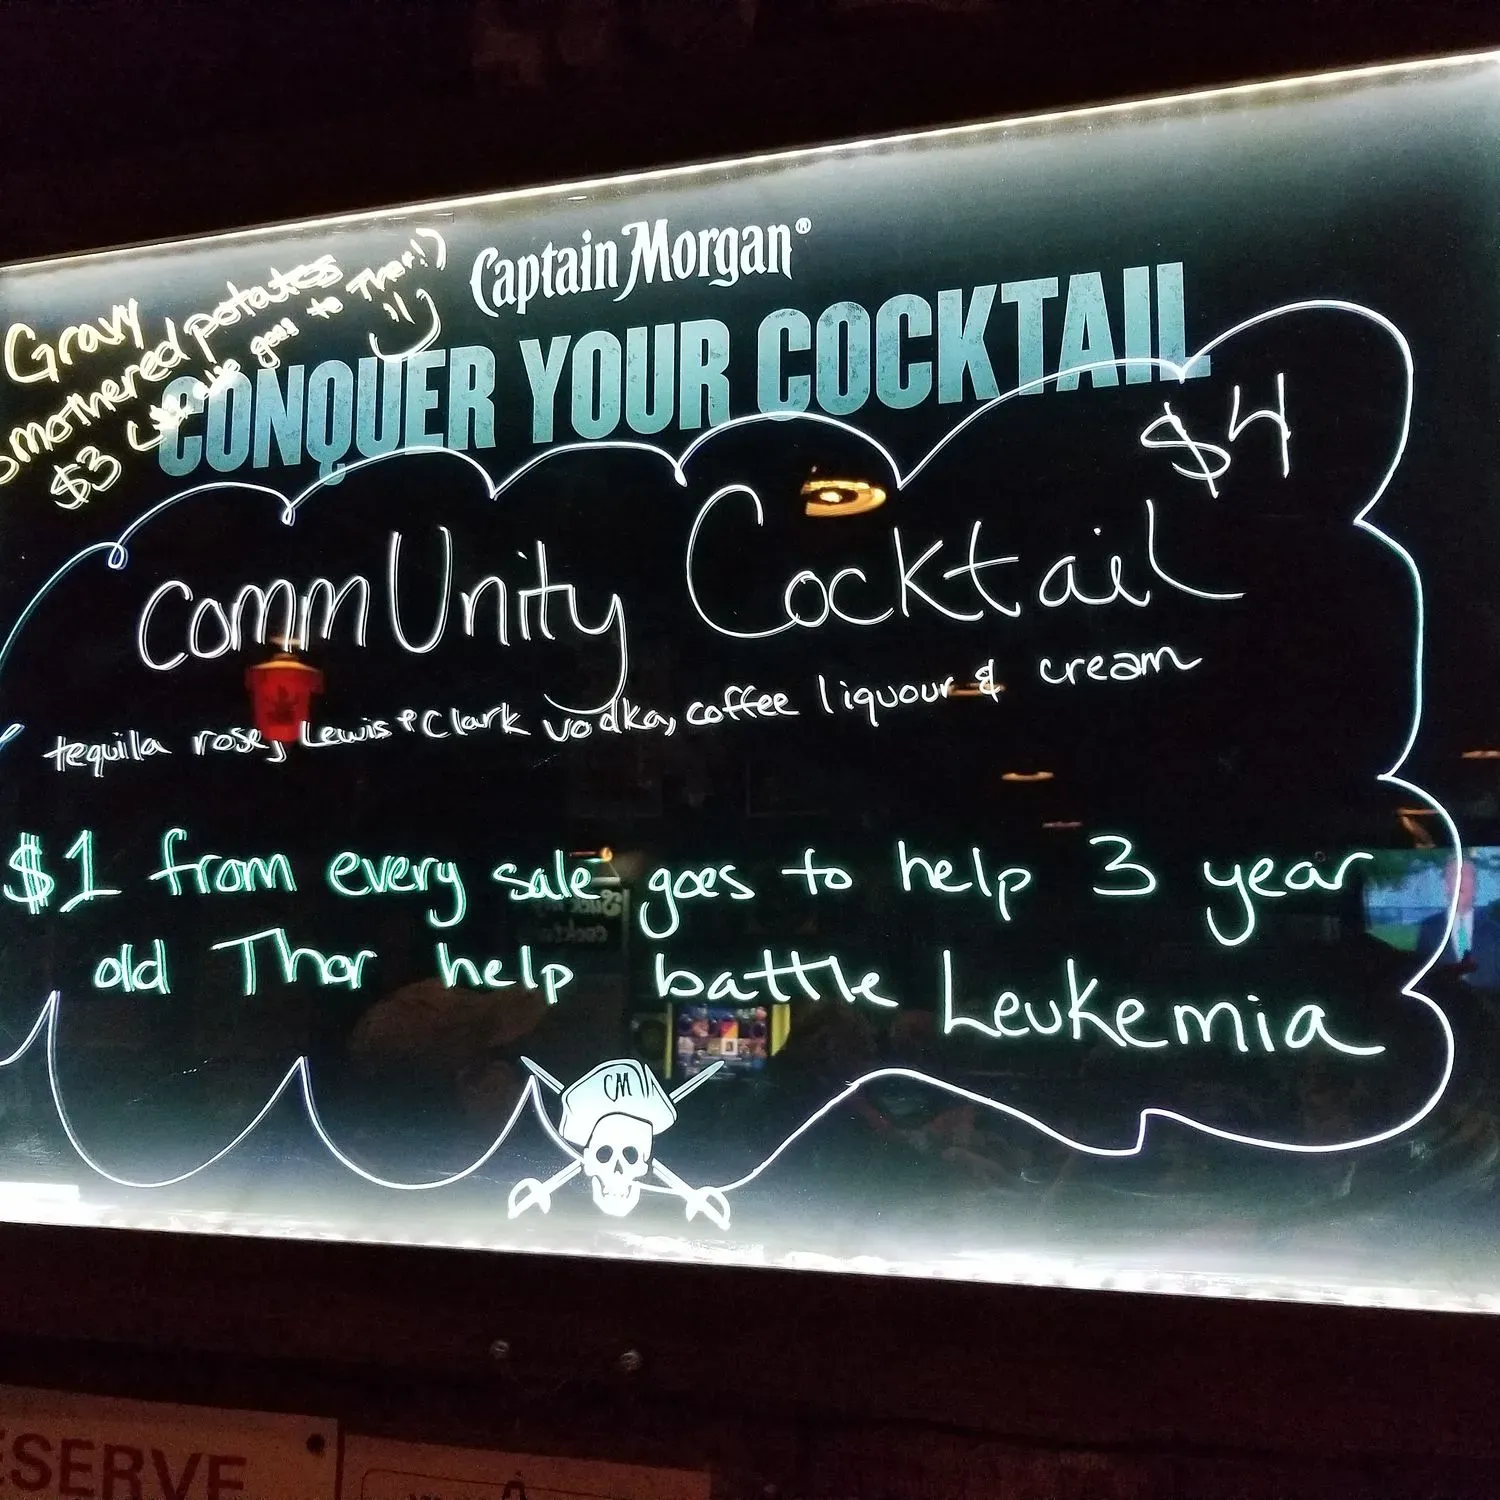 Captain Morgan®
CONQUER YOUR COCKTAIL
Gravy
smothered potatoes
$3
goes to Thor!!)
$4
commUnity Cocktail
tequila rose, Lewis & Clark vodka, coffee liquour & cream
$1 from every sale goes to help 3 year
old Thor help battle Leukemia
CM
ESERVE